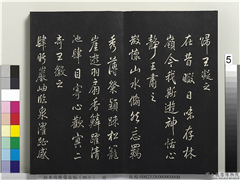 歸王凝之
在昔暇日味存林
嶺今我斯遊神怡心
靜王肅之
散懷山水翛然忘羈
秀薄粲穎疏松籠
崖遊羽扇霄鱗躍清
池歸目寄心歡冥二
奇王徽之
肆眄巖岫臨泉濯趾感
5